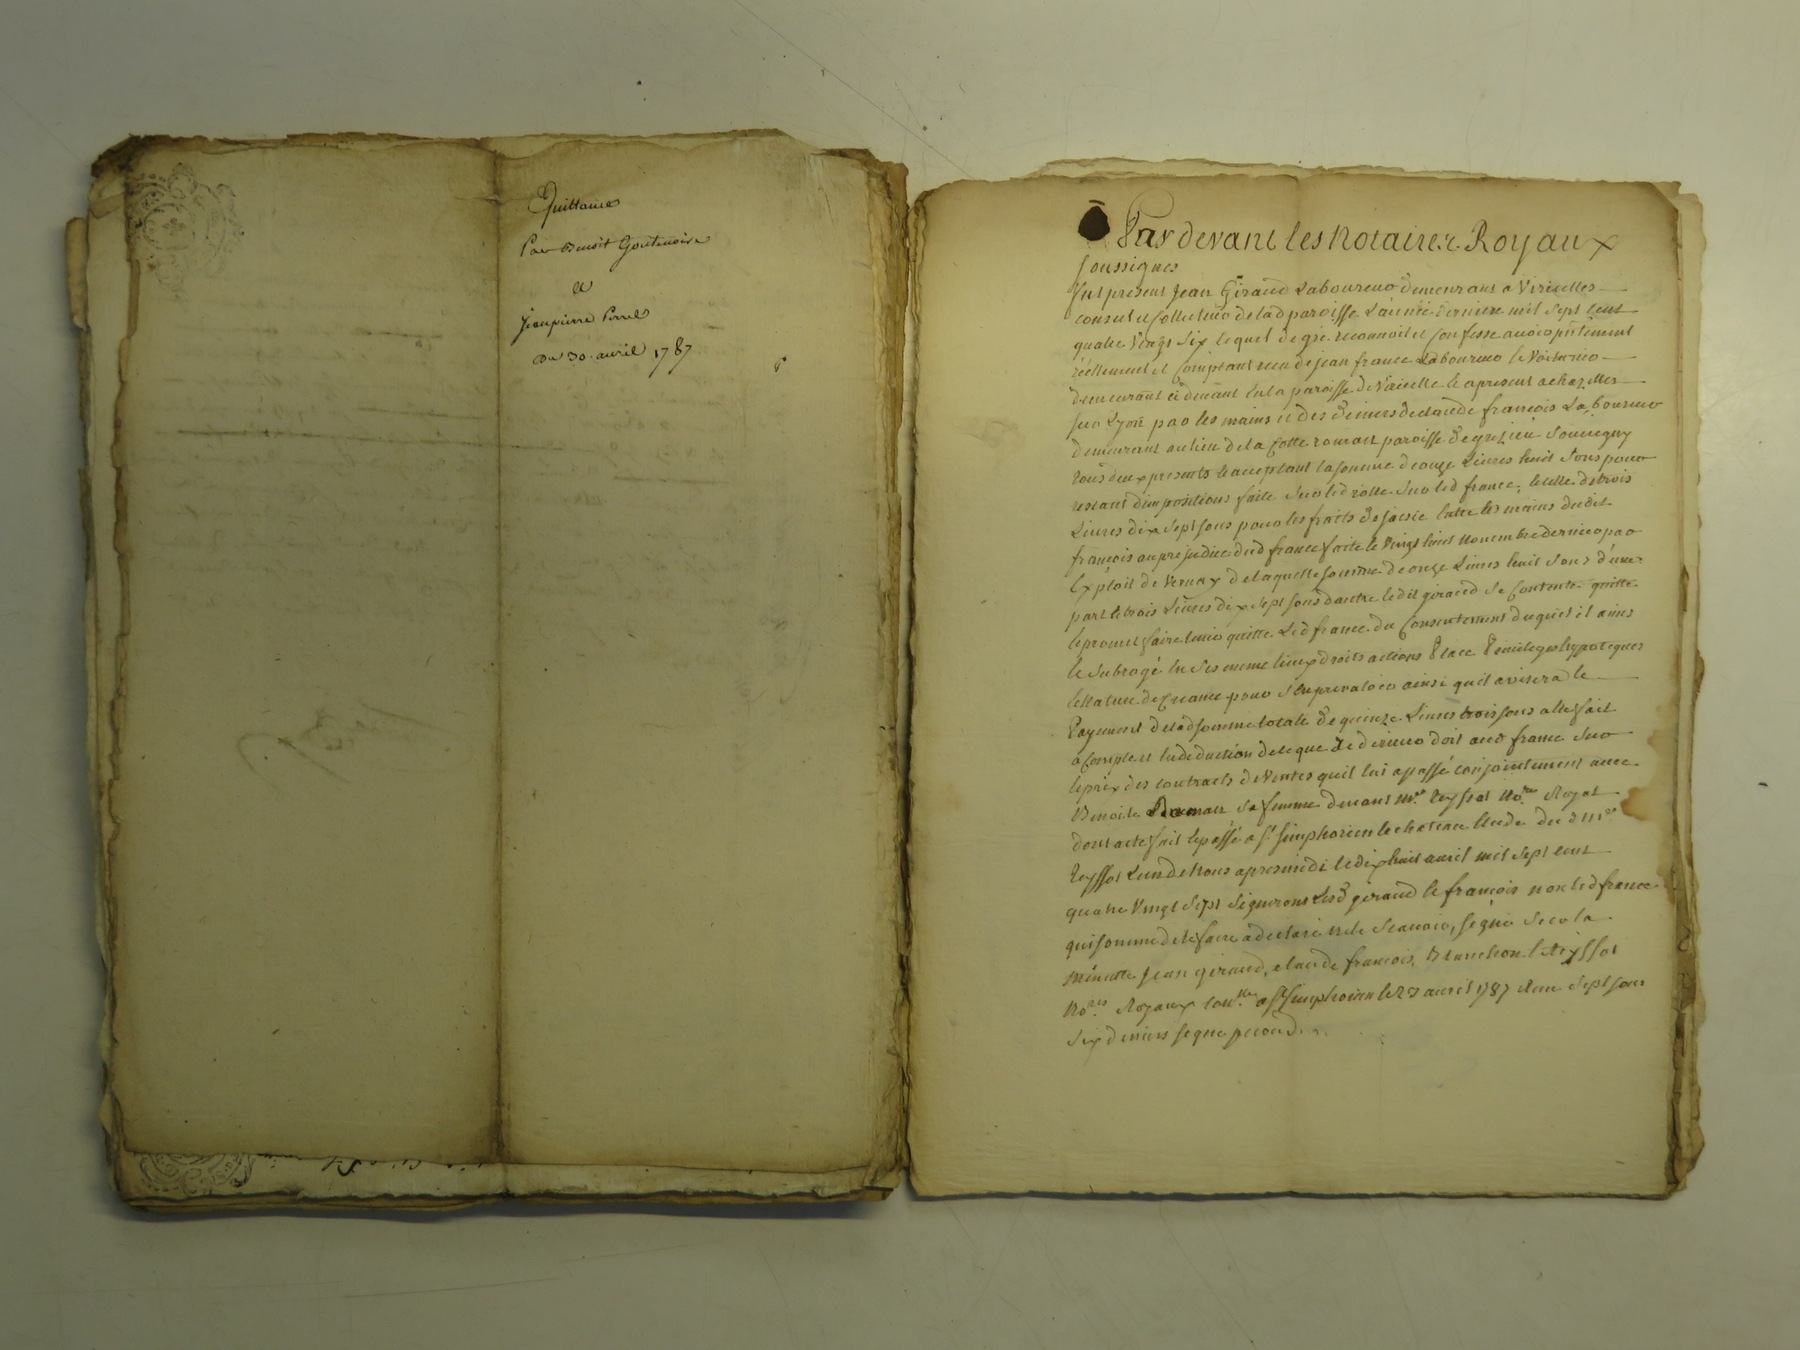 Quittance
Par Benoit Goutenoire
a
Jean pierre Perret
Du 30. avril 1787
Par devant les Notaires Royaux
soussignes
fut present Jean Giraud Laboureur demeurant a Viricelles
consul et collecteur de lad paroisse L'année derniere mil sept cent
quatre Vingt Six lequel de gré reconnoit et confesse avoir pntement
réellement et comptant recu de jean france Laboureur
demeurant cy devant en la paroisse de Viricelle et apresent a chazelles
sur Lyon par les mains et des deniers de claude françois Laboureur
demeurant au lieu de la Cotte paroisse de grezieu Souvigny
tous deux presents et acceptant la somme de onze Livres huit Sous pour
restant d'impositions faite Sur led rolle Sur led france, et celle de trois
Livres dix Sept sous pour les fraits de saisie entre les mains dudit
françois au prejudice dud france faite le Vingt huit novembre dernier par
Exploit de Vernay de laquelle somme de onze Livres huit Sous d'une
part et trois Livres dix Sept sous dautre ledit giraud se contente quitte
et promet faire tenir quitte Led france du Consentement duquel il a mis
et subrogé en Ses meme lieux droits actions place privileges hypoteques
et nature de creance pour s'en prevaloir ainsi quil avisera le
Payement de lad somme totale de quinze Livres sous a été fait
a compte et en deduction de ce que Le dernier doit aud france Sur
le prix des contracts de Ventes quil lui a passé conjointement avec
Benoite Sa femme devant me. teyssot Nore. Royal
dont acte fait et passé a st Simphorien le chateau Etude du d me
teyssot Lun de Nous apres midi le dix huit avril mil Sept cent
quatre Vingt Sept Signerons Lesd giraud et françois non led france
qui somme de le faire a declaré ne le Scavoir, signé Sur la
minutte Jean giraud, claude françois, Blanchon et teyssot
Nores. Royaux conlle a st Simphorien le 27 avril 1787 Recu Sept sous
Six deniers signé picard.